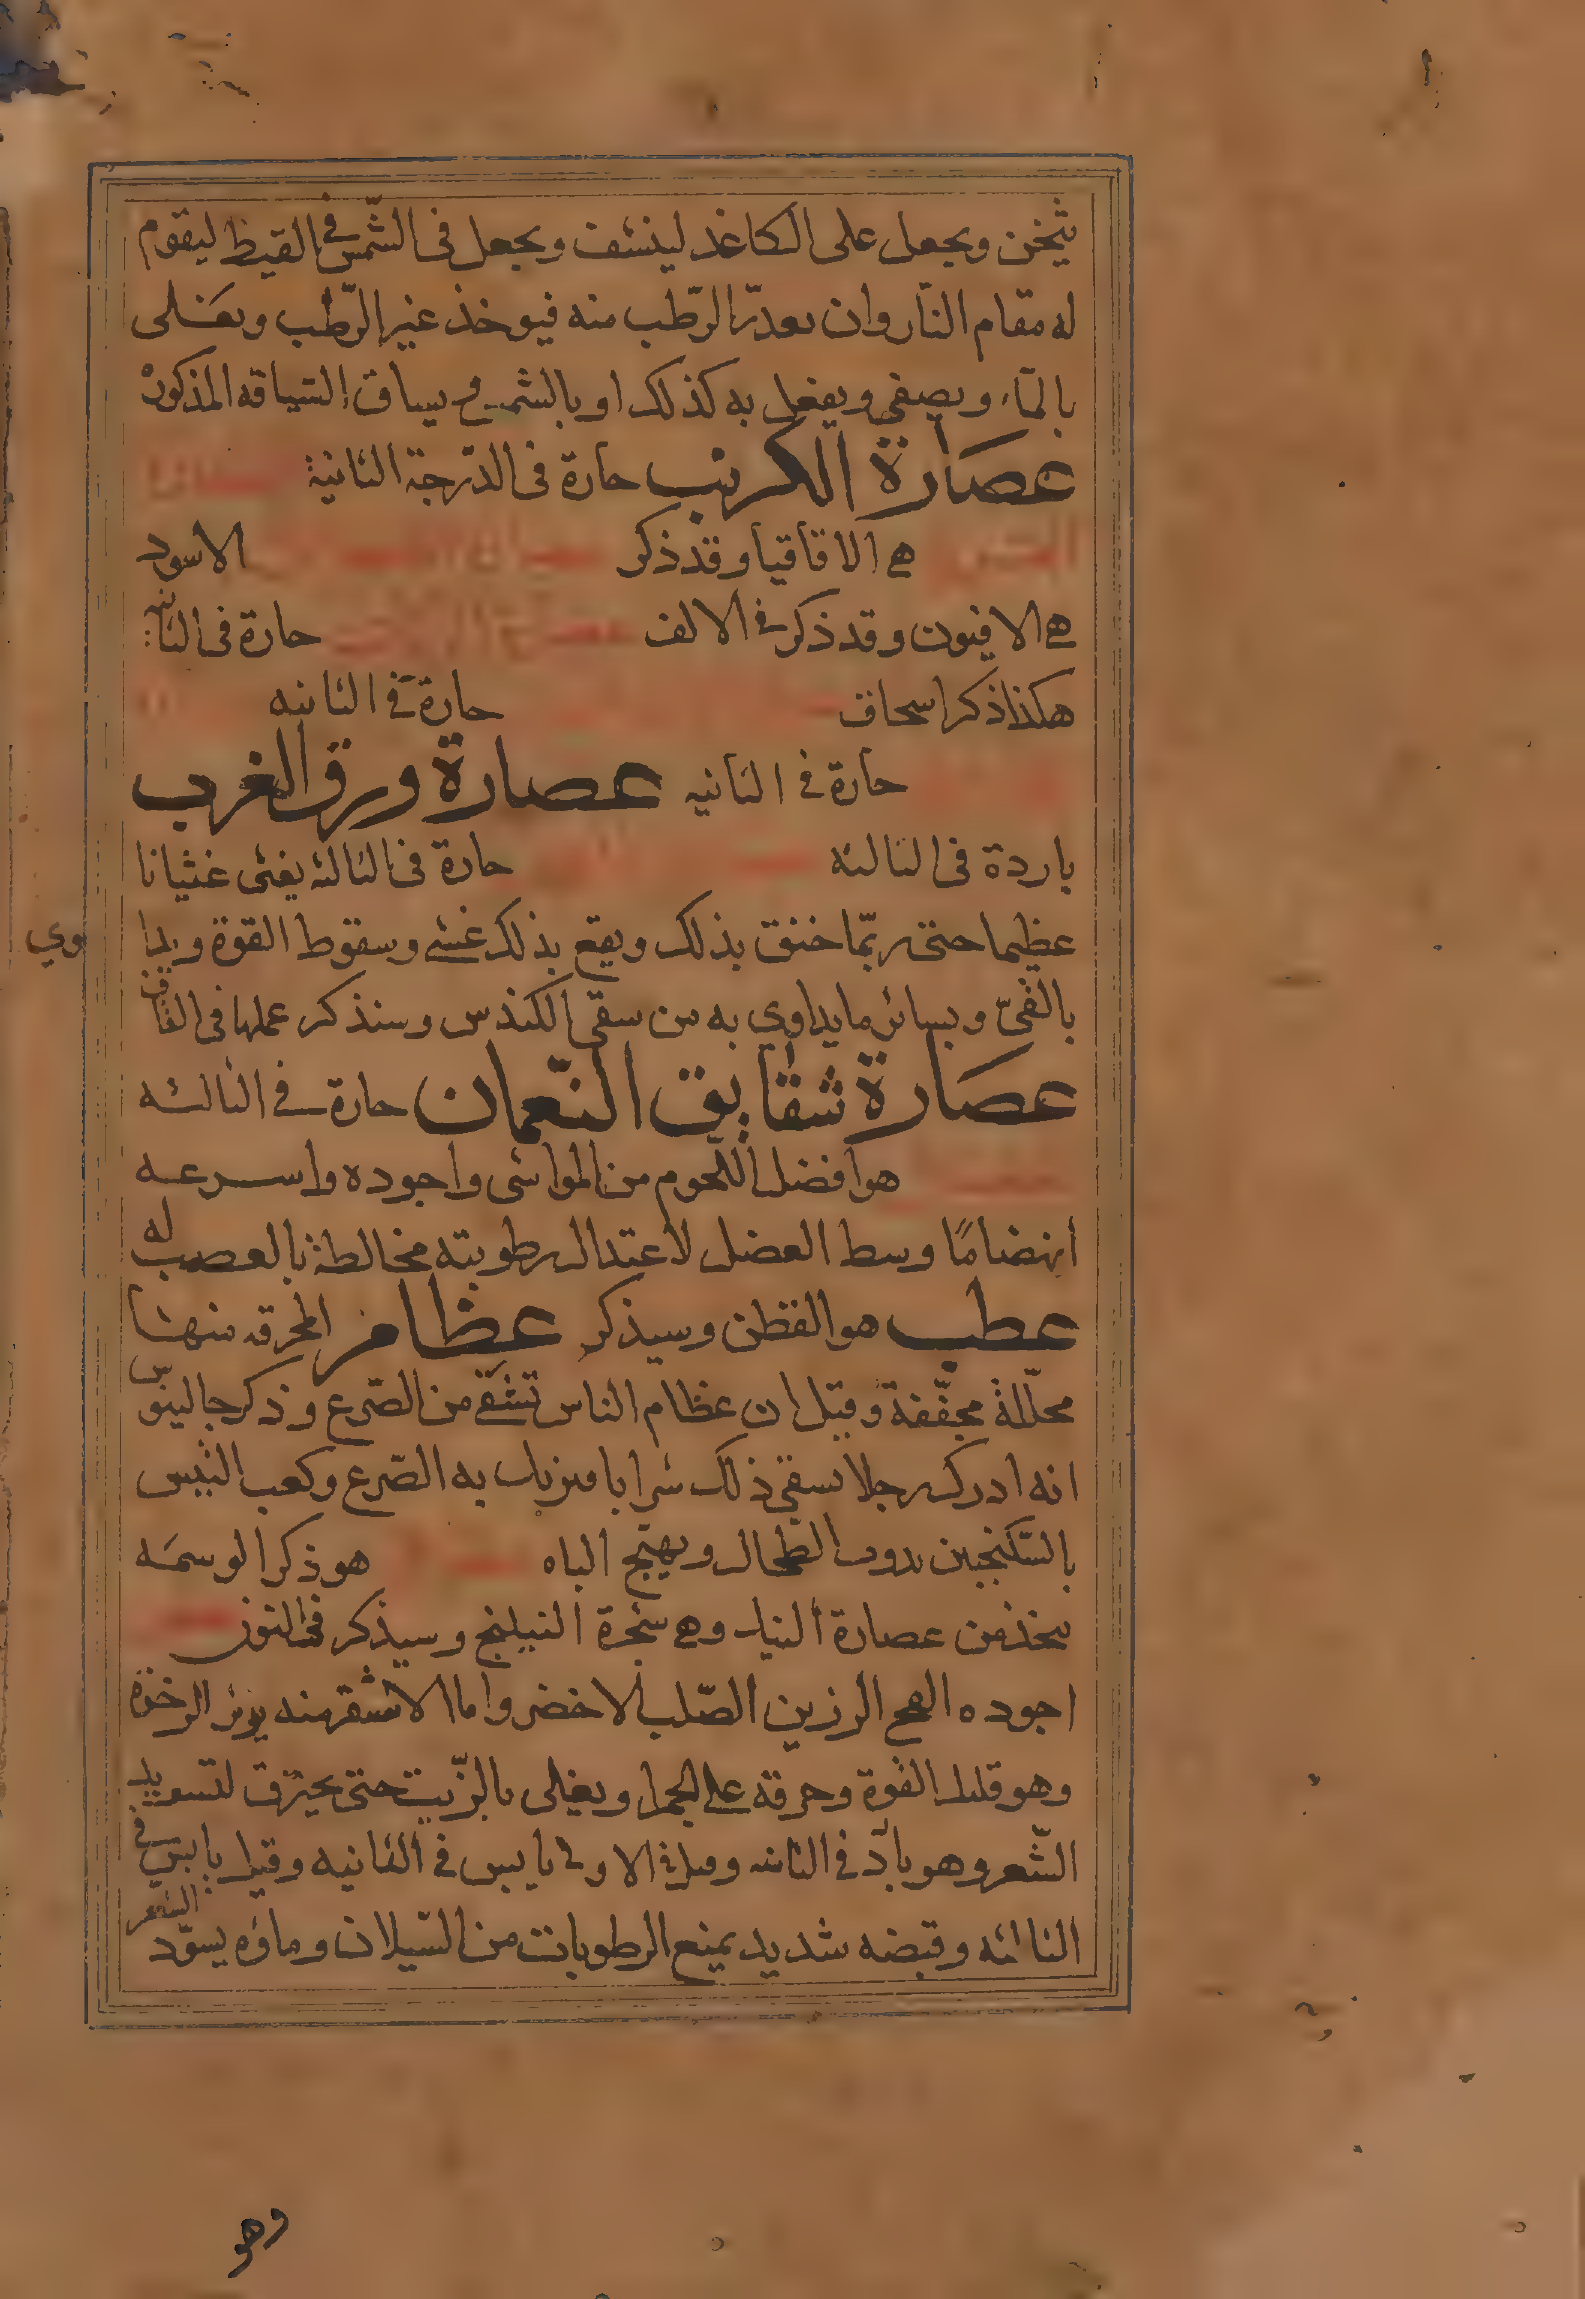 يثخن ويجعل على الكاغد لينشف ويجعل فى الشّمس فى القيظ ليقوم
له مقام النّار وان تعذّر الرّطب منه فيوخذ غير الرّطب ويغلى
بالمآء ويصفى ويفعل به كذلك او بالشمس ويساق السّياقه المذكورة
عصارة الكرنب حارة فى الدّرجة الثانية
هى الاقاقيا وقد ذكر الاسود
هى الافيون وقد ذكر فى الالف حارة فى الثانيه
هكذا ذكر اسحاق حارة فى الثانيه
حارة فى الثانيه عصارة ورق الغرب
باردة فى الثالثه حارة فى الثالثه يغثى غثيانا
عظيما حتى ربّما خنق بذلك ويقع بذلك غشى وسقوط القوة ويدا
وي
بالقىّ وبسائر مايداوي به من سقى الكندس وسنذكر عملها فى القاف
عصارة شقايق النّعمان حارة فى الثالثه
هو افضل اللّحوم من المواشى واجوده واسرعه
انهضامًا وسط العضل لاعتدال رطوبته مخالطة بالعصب له
عطب هو القطن وسيذكر عظام المحرقه منها
محلّلة مجفّفة وقيل ان عظام الناس تشفى من الصّرع وذكر جالينوس
انه ادرك رجلا يسقى ذلك شرابا من به الصّرع وكعب التيس
بالسّكنجبين يذوب الطّحال ويهيّج الباه هو ذكر الوسمَه
يتخذ من عصارة النيل وهى شجرة النيلنج وسيذكر فى النون
اجوده الفج الرزين الصّلب الاخضر واما الاشقر منه الرخوة
وهو قليل القوة وحرقه على الجمر ويغلى بالزّيت حتى يحترق لتسويد
الشّعر وهو بارد فى الثانيه وقيل فى الاولى يابس فى الثانيه وقيل يابس فى
الثالثه وقبضه شديد يمنع الرطوبات من السّيلان وماؤه يسوّد الشعر
وهو